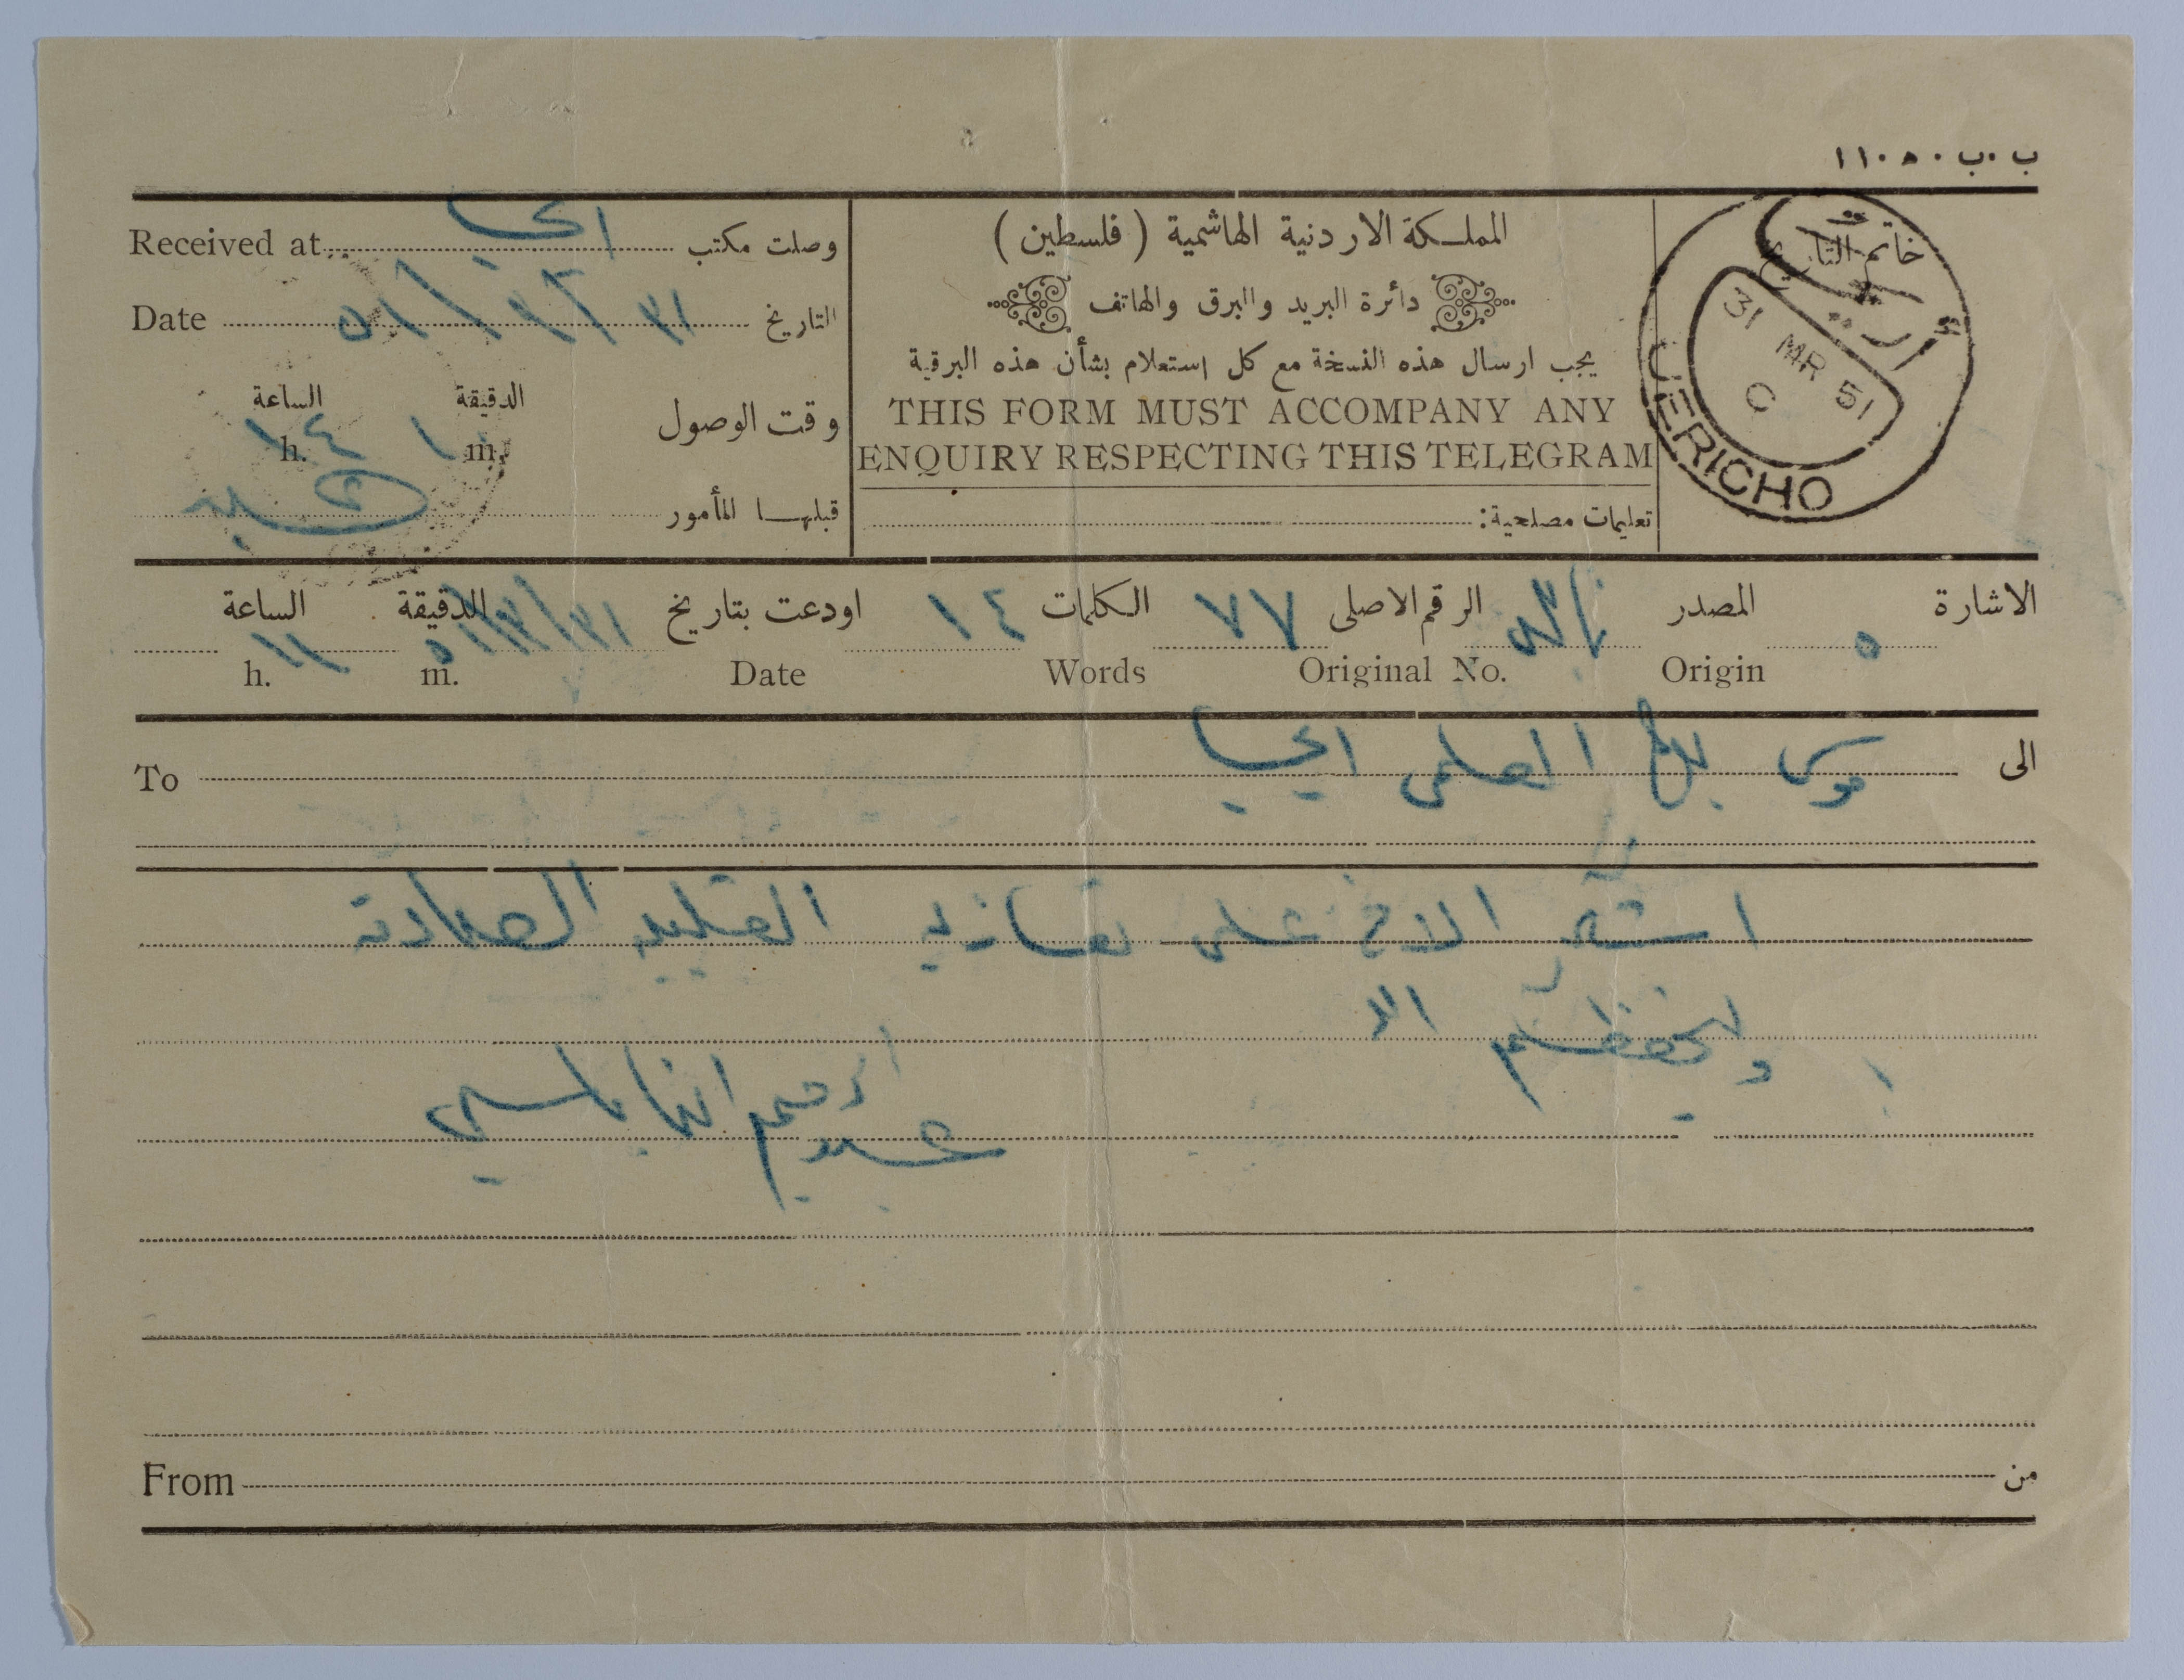 ب.ب ١١٠٥٠
Received at وصلت مكتب اريحا
Date التاريخ ٣١/٣/٥١
الساعة الدقيقة وقت الوصول
h. ١٤ m. ١
قبلها المأمور
المملكة الاردنية الهاشمية (فلسطين)
دائرة البريد والبرق والهاتف
يجب ارسال هذه النسخة مع كل استعلام بشأن هذه البرقية
THIS FORM MUST ACCOMPANY ANY
ENQUIRY RESPECTING THIS TELEGRAM
تعليمات مصلحية:
خاتم التاريخ
أريحا
31 MR 51
C
JERICHO
الاشارة ٥ المصدر نابلس الرقم الاصلي ٧٧ الكلمات ١٤ اودعت بتاريخ ٣١/٣/٥١ الدقيقة الساعة ١١
Origin Original No. Words Date m. h.
الى موسى بك العلمي اريحا
To
اشكر الاخ على تعازيه القلبية الصادقة
وليحفظكم الله
عبد الرحيم النابلسي
From من